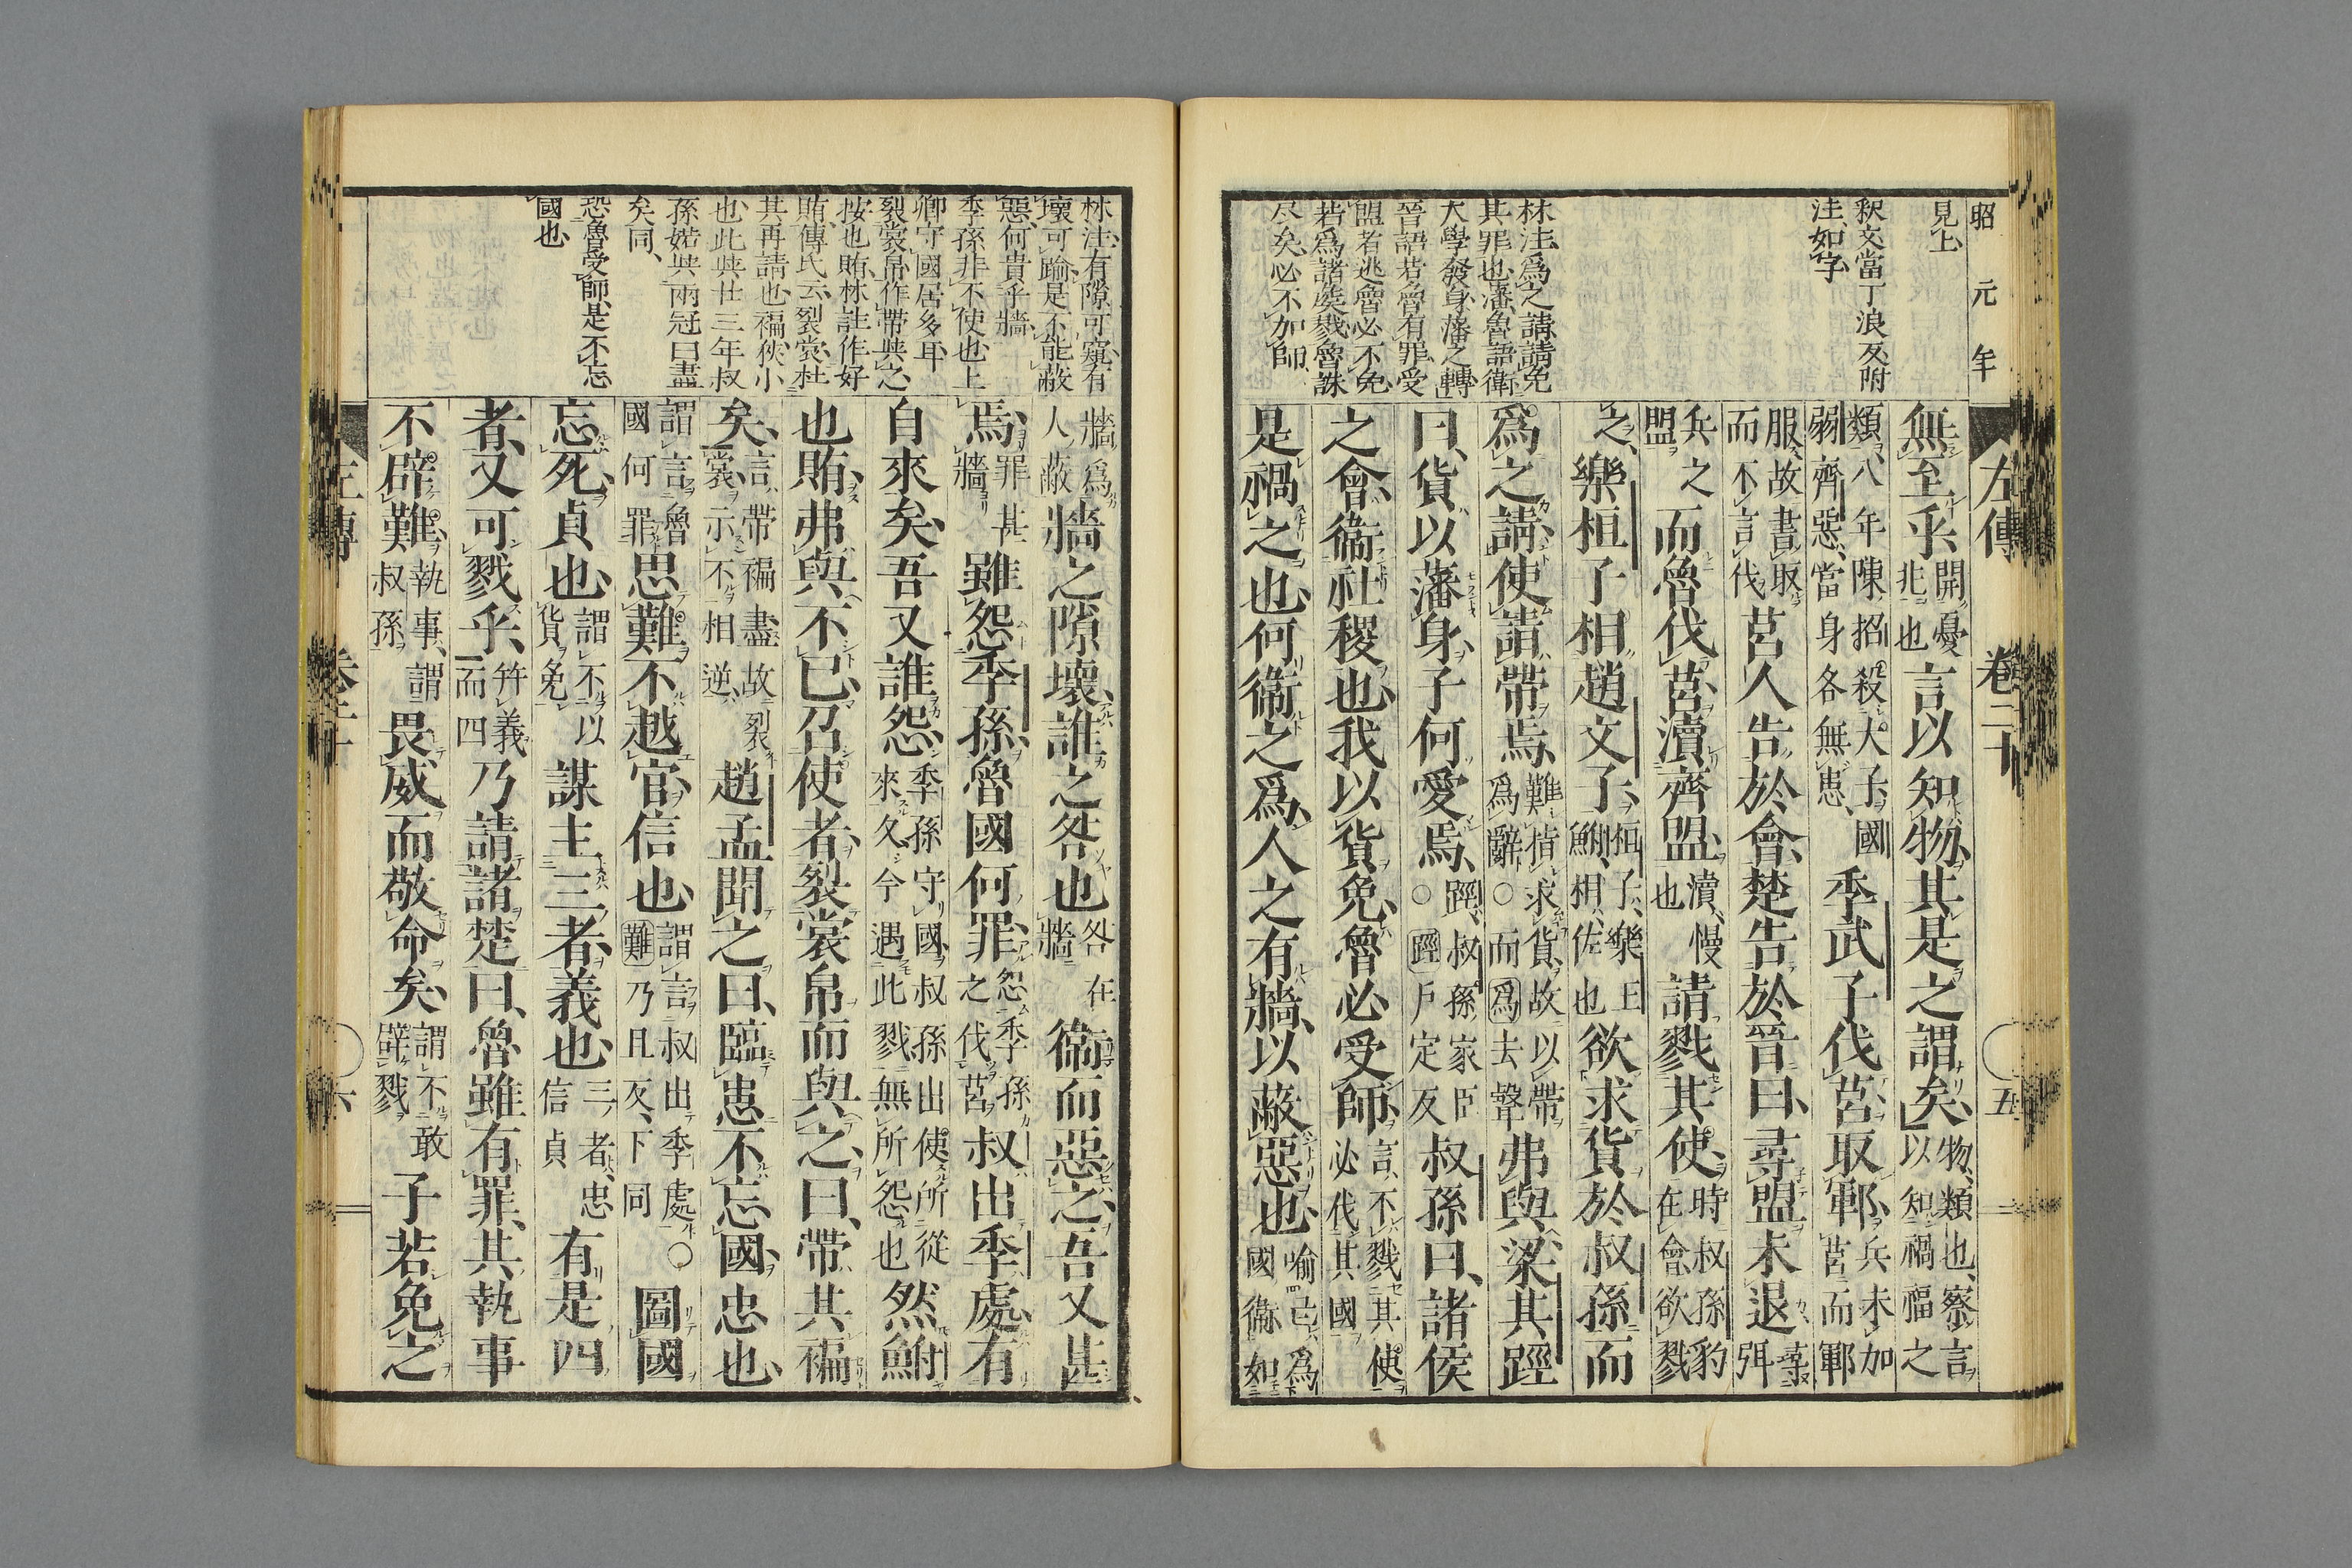 昭元年
見上
釈文當丁浪反附
注如字
林注爲之請請免
其罪也藩魯語衛
大學發身藩之轉
晉語若魯有罪受
盟者逃魯必不免
若爲諸矦戮魯誅
尽矣必不加師
左傳 卷二十 五
無至乎開憂兆也言以知物其是之謂矣物類也察言以知禍福之
類八年陳招殺大子國弱齊惡當身各無患季武子伐莒取鄆兵未加莒而鄆
服故書取而不言伐莒人告於會楚告於晉曰尋盟未退尋弭
兵之盟而魯伐莒瀆齊盟瀆慢也請戮其使時叔孫豹在會欲戮
之樂桓子相趙文子桓子樂王鮒相佐也欲求貨於叔孫而
爲之請使請帶焉難指求貨故以帶爲辭○而爲去聲弗與梁其踁
曰貨以藩身子何愛焉踁叔孫家臣○踁戶定反叔孫曰諸侯
之會衞社稷也我以貨免魯必受師言不戮其使必伐其國
是禍之也何衞之爲人之有牆以蔽惡也喻己爲國衞如
林注有隙可窺有
壞可踰是不能蔽
惡何貴乎牆
季孫非不使也上
卿守國居多耳
裂裳帛作帶與之
按也賄林註作好
賄傳氏云裂裳杜
其再請也褊狹小
也此與廿三年叔
孫婼與兩冠曰盡
矣同
恐魯受師是不忘
國也
牆爲人蔽牆之隙壞誰之咎也咎在牆衞而惡之吾又甚
焉罪甚牆雖怨季孫魯國何罪怨季孫之伐莒叔出季處有
自來矣吾又誰怨季孫守國叔孫出使所從來久今遇此戮無所怨也然鮒
也賄弗與不已召使者裂裳帛而與之曰帶其褊
矣言帶褊盡故裂裳示不相逆趙孟聞之曰臨患不忘國忠也
謂言魯國何罪思難不越官信也謂言叔出季處○難乃旦反下同圖國
忘死貞也謂不以貨免謀主三者義也三者忠信貞有是四
者又可戮乎幷義而四乃請諸楚曰魯雖有罪其執事
不辟難執事謂叔孫畏威而敬命矣謂不敢辟戮子若免之
左傳 卷二十 六